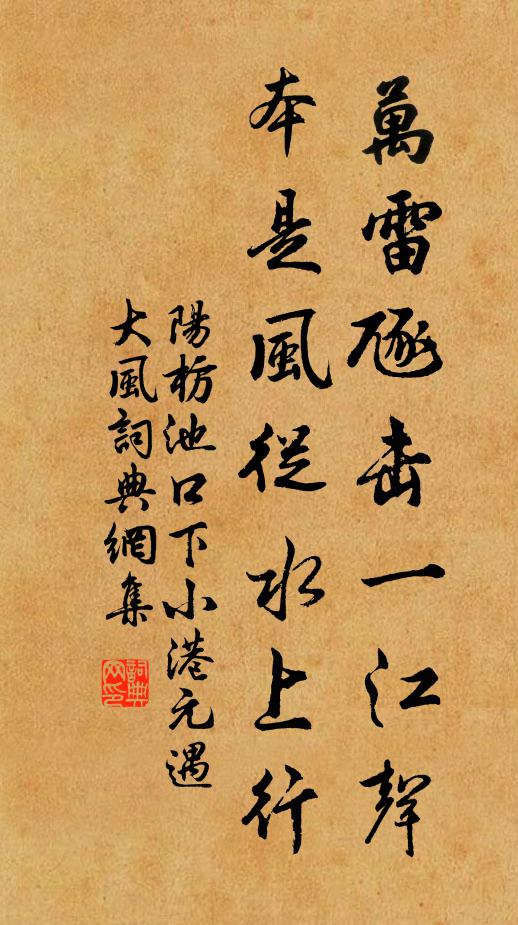 萬雷豗击一江聲
本是風從水上行
陽池口下小港元遇
大風詞典網集
詞典網印